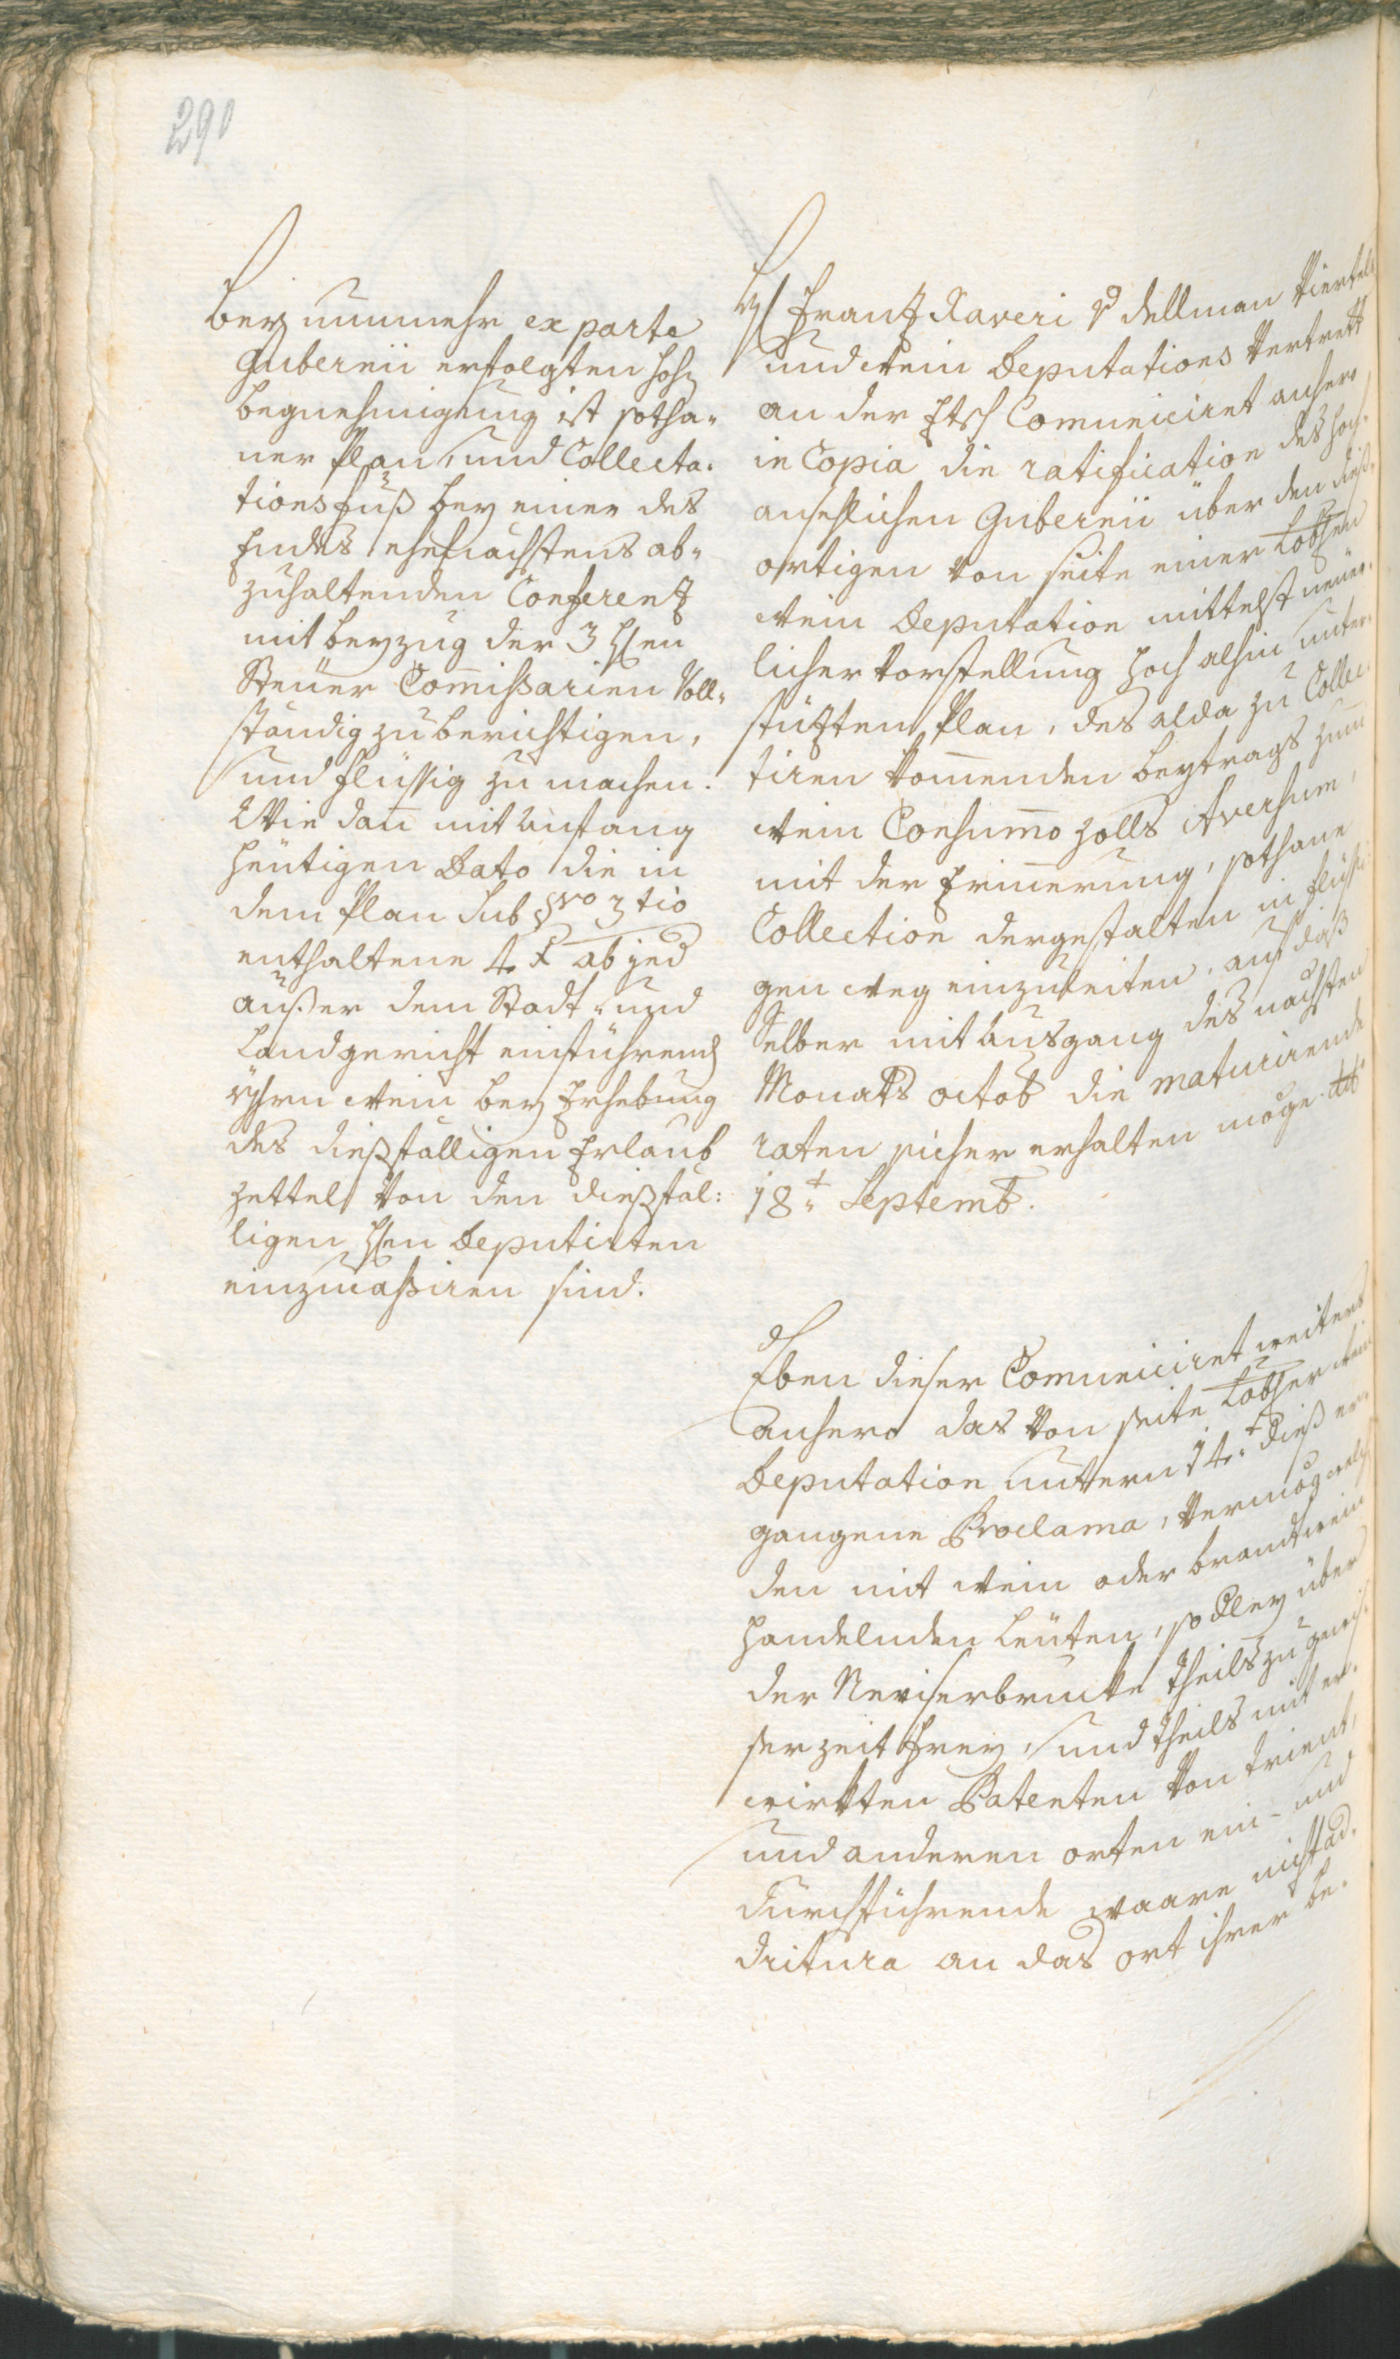 290
Bey nunmehr ex parte
Gubernii erfolgten hohen
begnehmigung ist sotha„
ner Plan, und Collecta„
tionsfuß bey einer des
Endes ehenächstens ab„
zuhaltenden Conferenz
mit beyzug der 3 Hren
Steuer Commissarien Voll„
ständig zu berichtigen,
und flüssig zu machen.
Wie dan mit Anfang
heutigen Dato die in
dem Plan sub §vo 3tio
enthaltene 4 x ab jed
außer dem Stadt- und
Landgericht einführend
Yhrn Wein bey Erhebung
des dießfälligen Erlaub
zettel von den dießfäl:
ligen Hren Deputirten
einzucassiren sind.
Hr Franz Xaveri v dellman Viertels
und Wein Deputations Vertrett
an der Etsch Communiciret anhero
in Copia die ratification des hoch„
ansehlichen Gubernii über den dieß„
ortigen von seite einer Lobhen
Wein Deputation mittelst neuer„
licher Vorstellung hoch alhin unter„
stüzten Plan, des alda zu Collec„
tiren komenden beytrags zum
Wein Consumo zolls Aversum,
mit der Erinnerung, sothane
Collection dergestalten in flüssi
gen Weg einzuleiten, auf daß
Selber mit Ausgang des nächsten
Monats octob die maturirende
raten sicher erhalten möge. ddto
18t Septemb.
Eben dieser Communiciret weiters
anhero das von seite Lobher Wein
Deputation unterm 14t dieß er„
gangene Proclama, vermög welch
den mit Wein oder brandwein
handelnden Leuten, so derley über
der Neviserbrucke theils zu gewis„
ser zeit frey, und theils mit er„
wirkten Patenten von Trient,
und anderen orten ein- und
durchführende waare nicht ad„
dritura an das ort ihrer be„